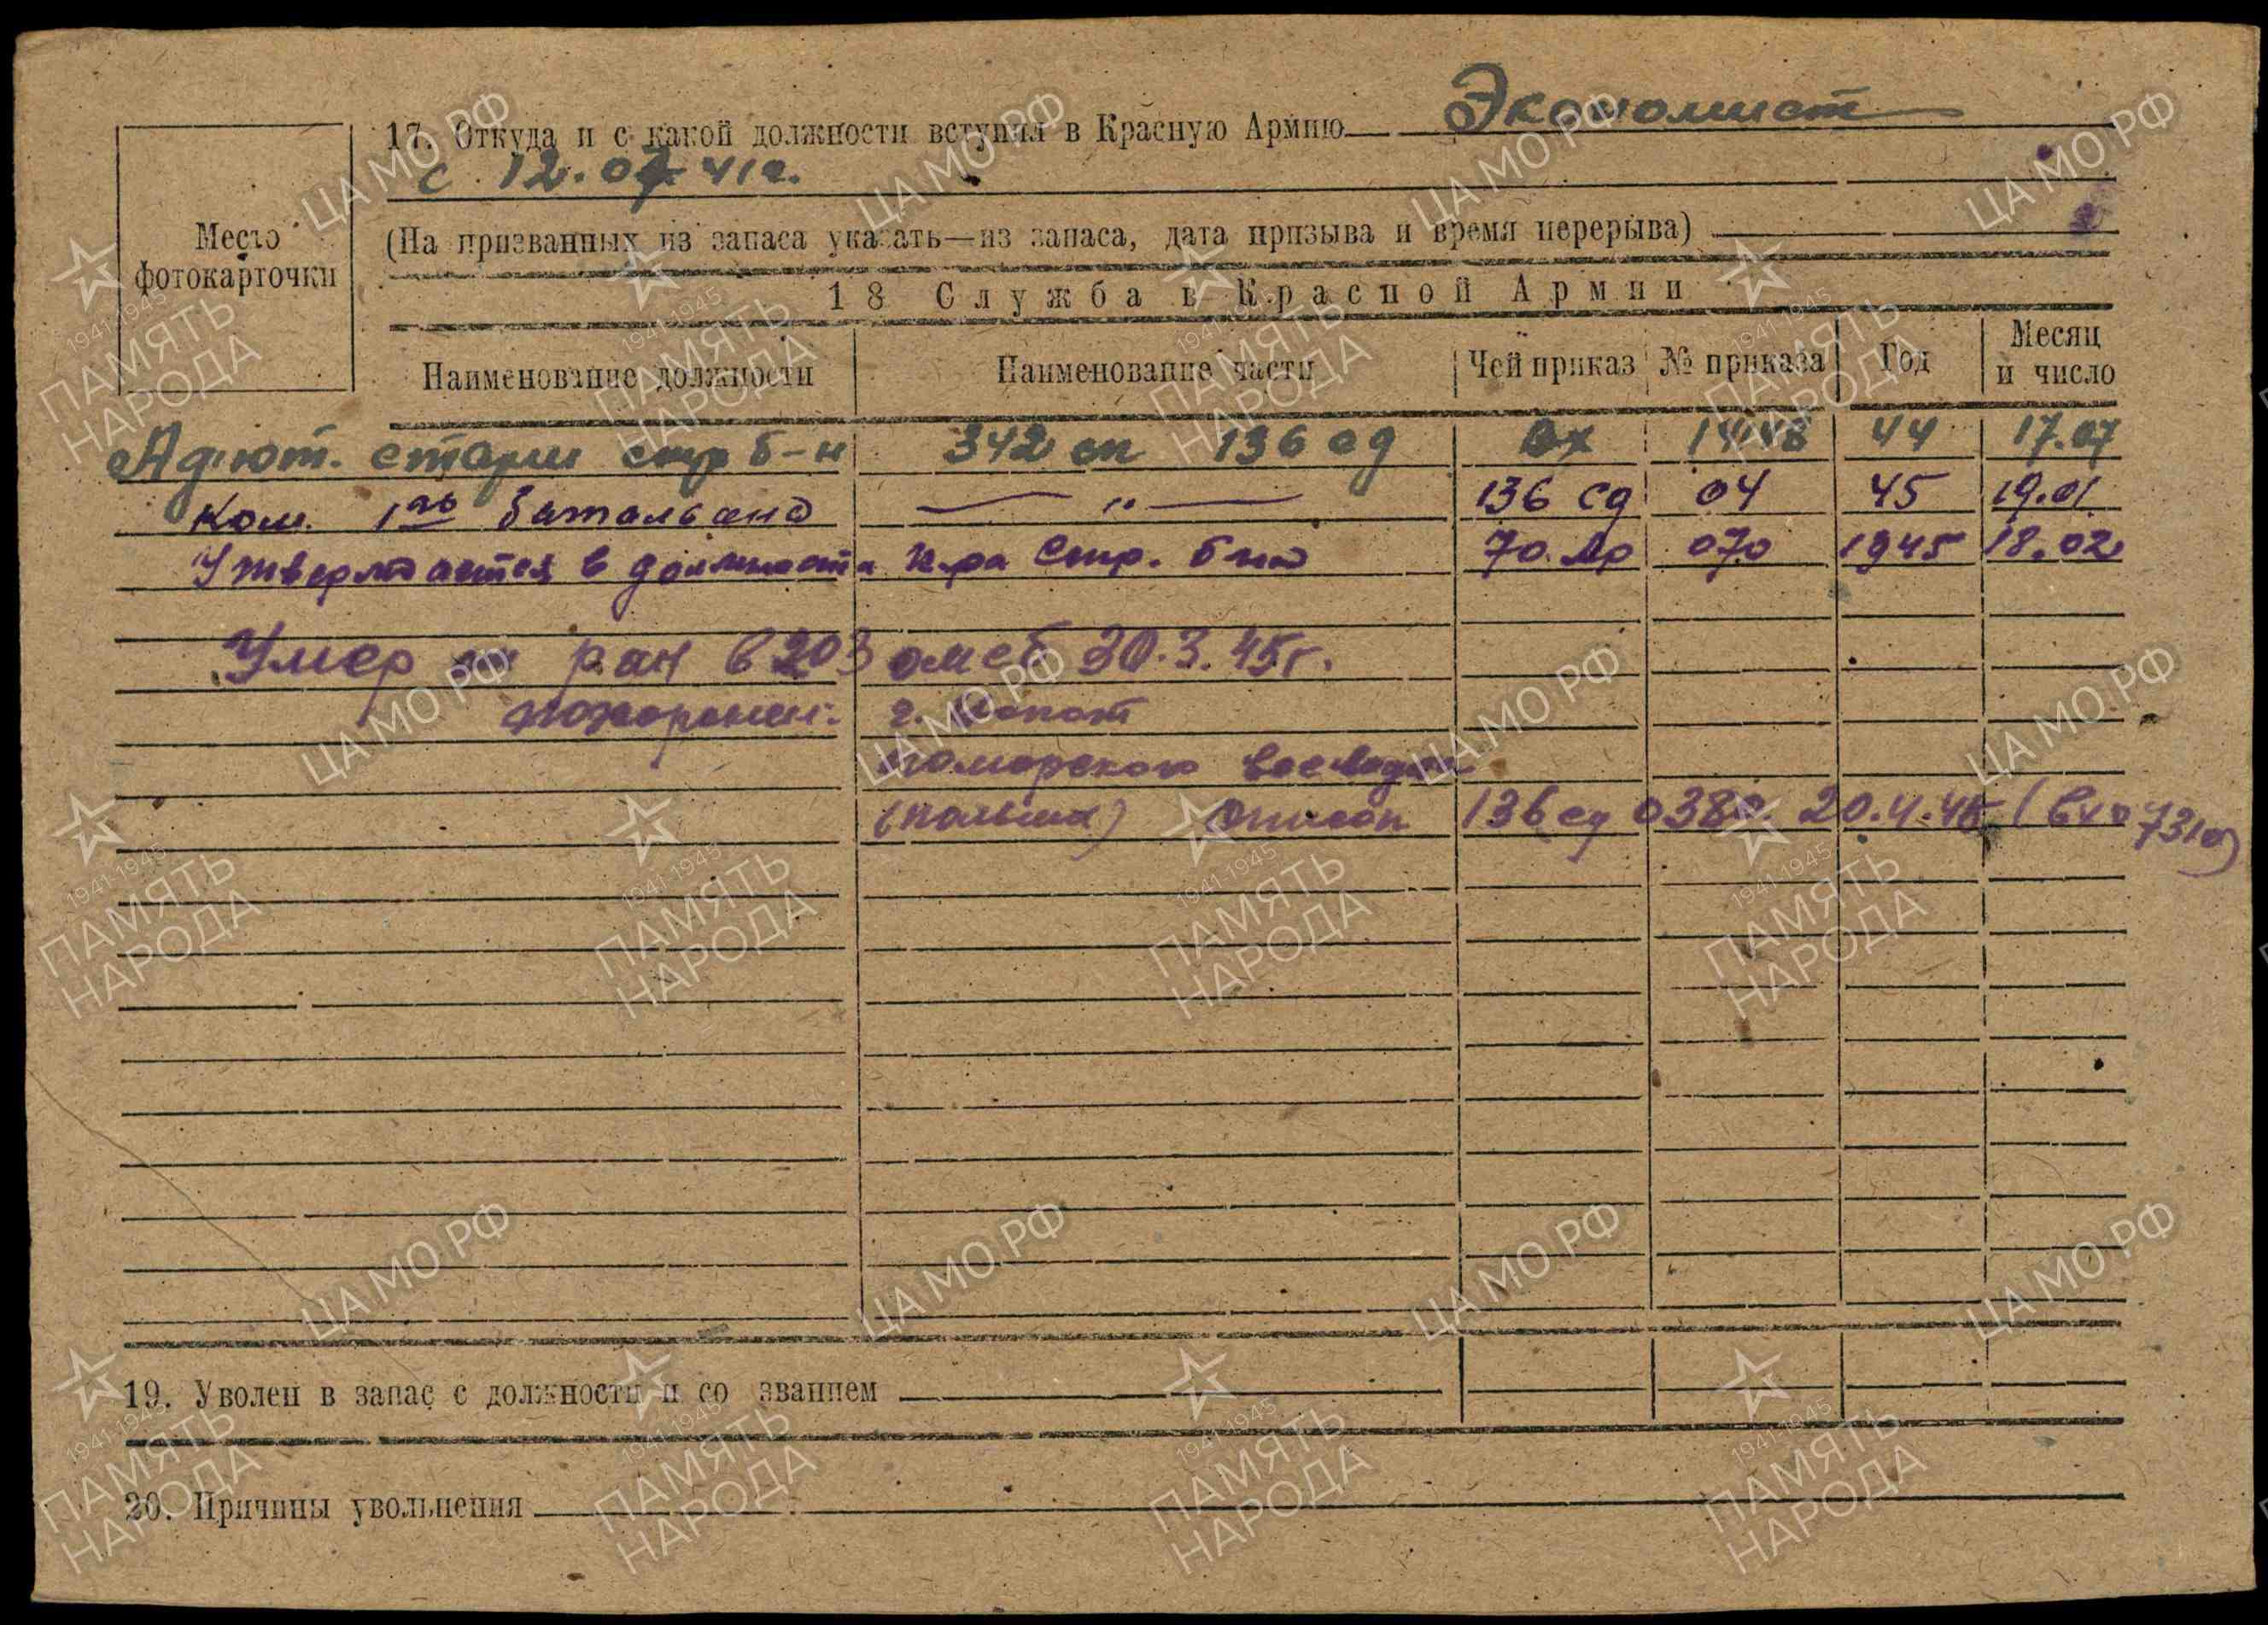 17. Откуда и с какой должности вступил в Красную Армию Экономист
с 12.07.41г.
Место
фотокарточки
(На призванных из запаса указать—из запаса, дата призыва и время перерыва)
18 Служба в Красной Армии
Наименование должности Наименование части Чей приказ № приказа Год Месяц и число
Адъют. старш стр б-н 342 сп 136 сд 44 17.07
Ком. 1го батальона — " — 136 сд 04 45 19.01
Утверждается в должности к-ра Стр. б-на 70 Ар 070 1945 18.02
Умер от ран в 203 омсб 30.3.45г.
похоронен. г.
поморского
(польша) 136 сд 0380 20.4.45 (вх 7310)
19. Уволен в запас с должности и со званием
20. Причины увольнения
ЦА МО РФ
1941-1945
ПАМЯТЬ
НАРОДА